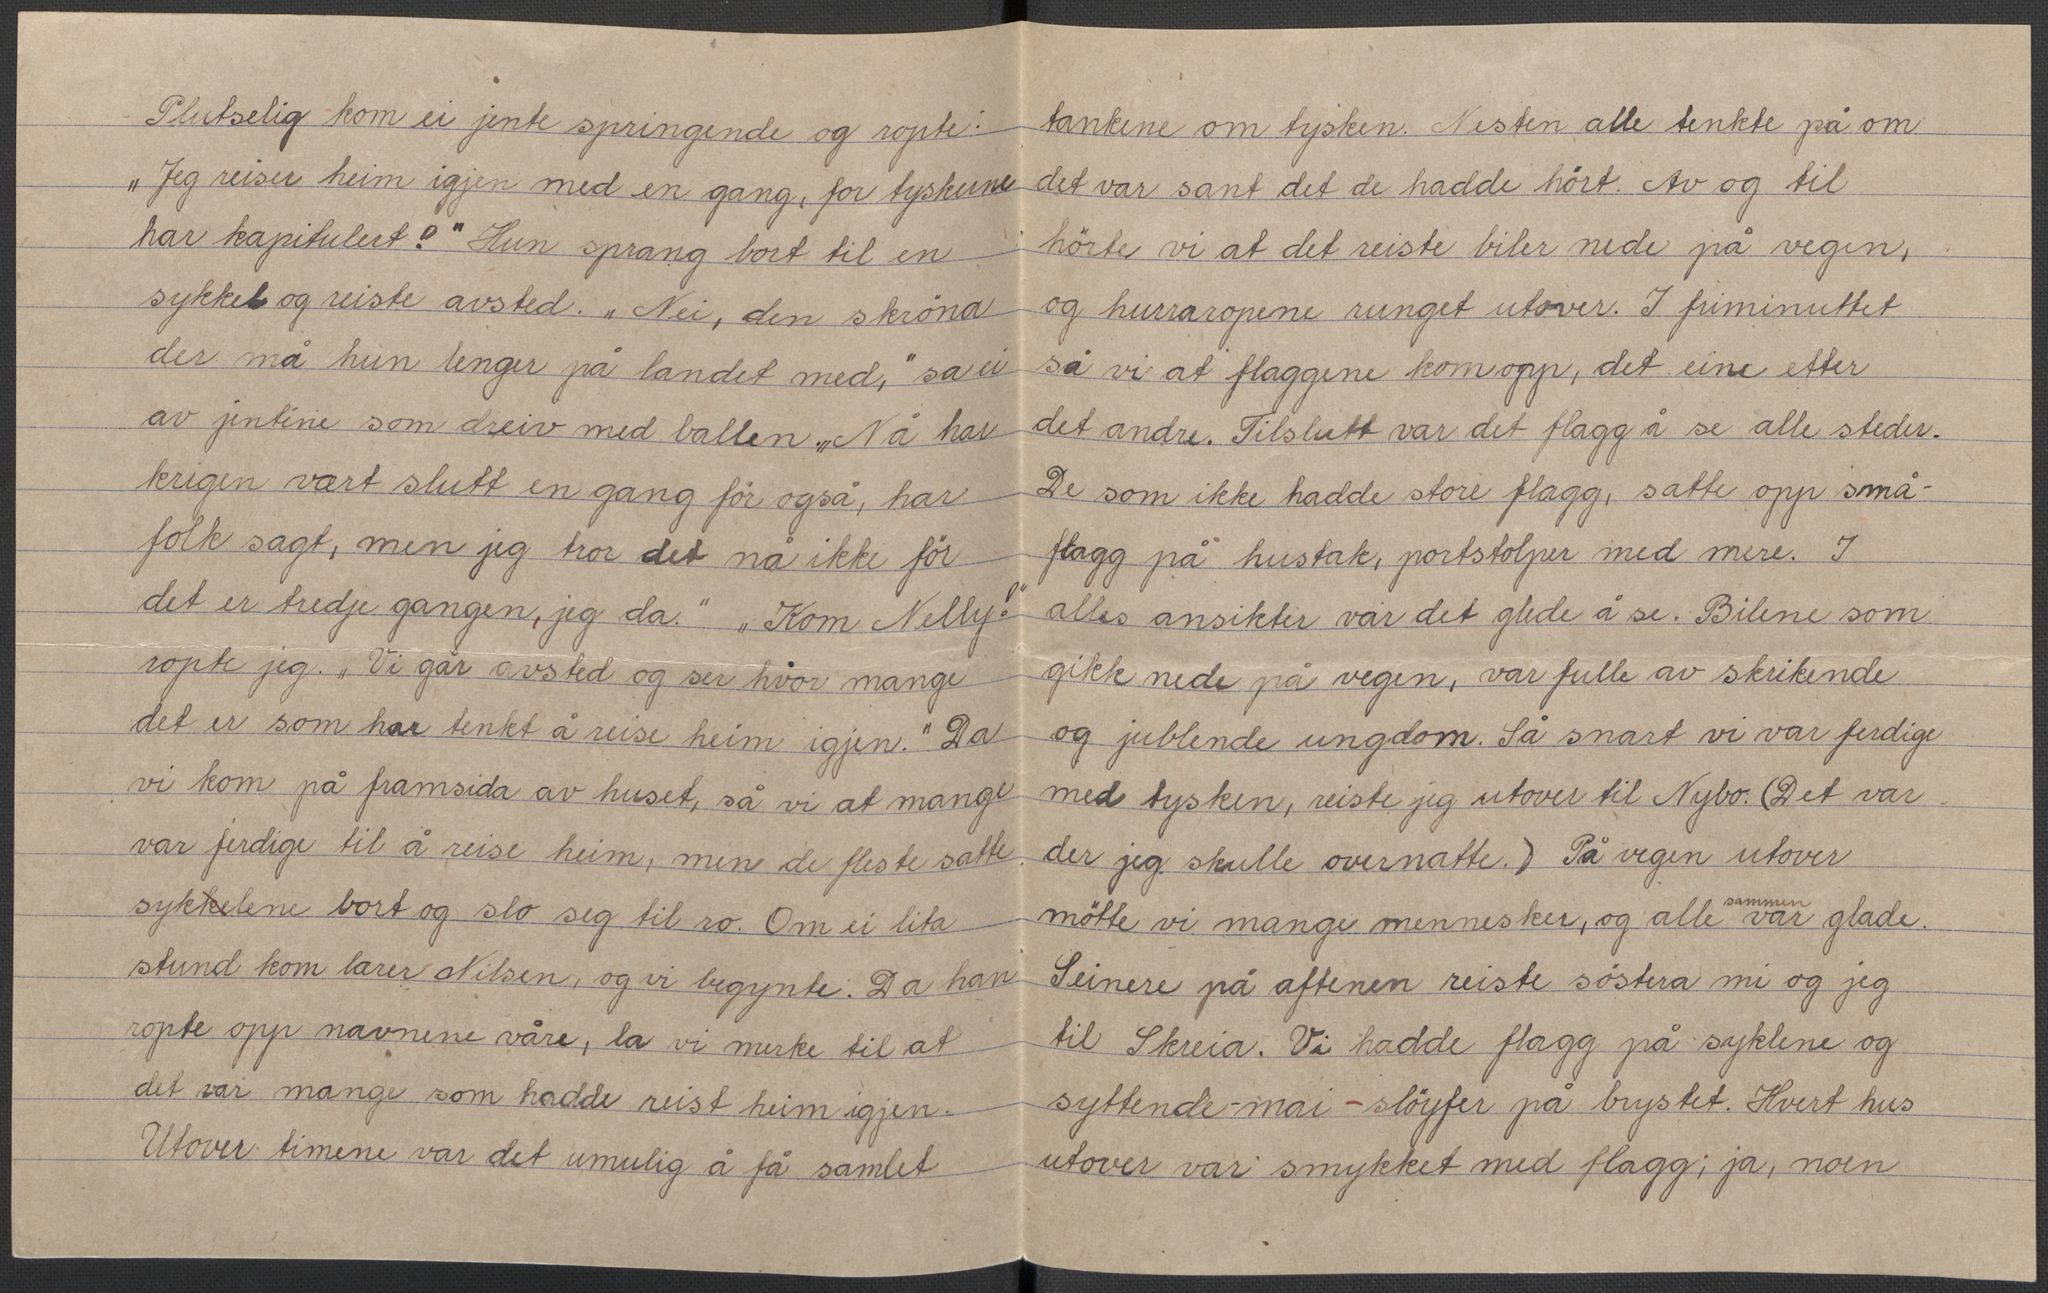 Plutselig kom ei jente springende og ropte:
„Jeg reiser heim igjen med en gang, for tyskerne
har kapitulert!" Hun sprang bort til en
sykkel og reiste avsted. „Nei, den skröna
der må hun lenger på landet med," sa ei
av jentene som dreiv med ballen. „Nå har
krigen vært slutt en gang för også, har
folk sagt, men jeg tror det nå ikke för
det er tredje gangen, jeg da." „Kom Nelly!"
ropte jeg. „Vi går avsted og ser hvor mange
det er som har tenkt å reise heim igjen." Da
vi kom på framsida av huset, så vi at mange
var ferdige til å reise heim, men de fleste satte
sykkelene bort og slo seg til ro. Om ei lita
stund kom lærer Nilsen, og vi begynte. Da han
ropte opp navnene våre, la vi merke til at
det var mange som hadde reist heim igjen.
Utover timene var det umulig å få samlet
tankene om tysken. Nesten alle tenkte på om
det var sant det de hadde hört. Av og til
hörte vi at det reiste biler nede på vegen,
og hurraropene runget utover. I friminuttet
så vi at flaggene kom opp, det eine etter
det andre. Tilslutt var det flagg å se alle steder.
De som ikke hadde store flagg, satte opp små-
flagg på hustak, portstolper med mere. I
alles ansikter var det glede å se. Bilene som
gikk nede på vegen, var fulle av skrikende
og jublende ungdom. Så snart vi var ferdige
med tysken, reiste jeg utover til Nybo. (Det var
der jeg skulle overnatte.) På vegen utover
mötte vi mange mennesker, og alle sammen var glade.
Seinere på aftenen reiste söstera mi og jeg
til Skreia. Vi hadde flagg på syklene og
syttende-mai-slöyfer på brystet. Hvert hus
utover var smykket med flagg; ja, noen